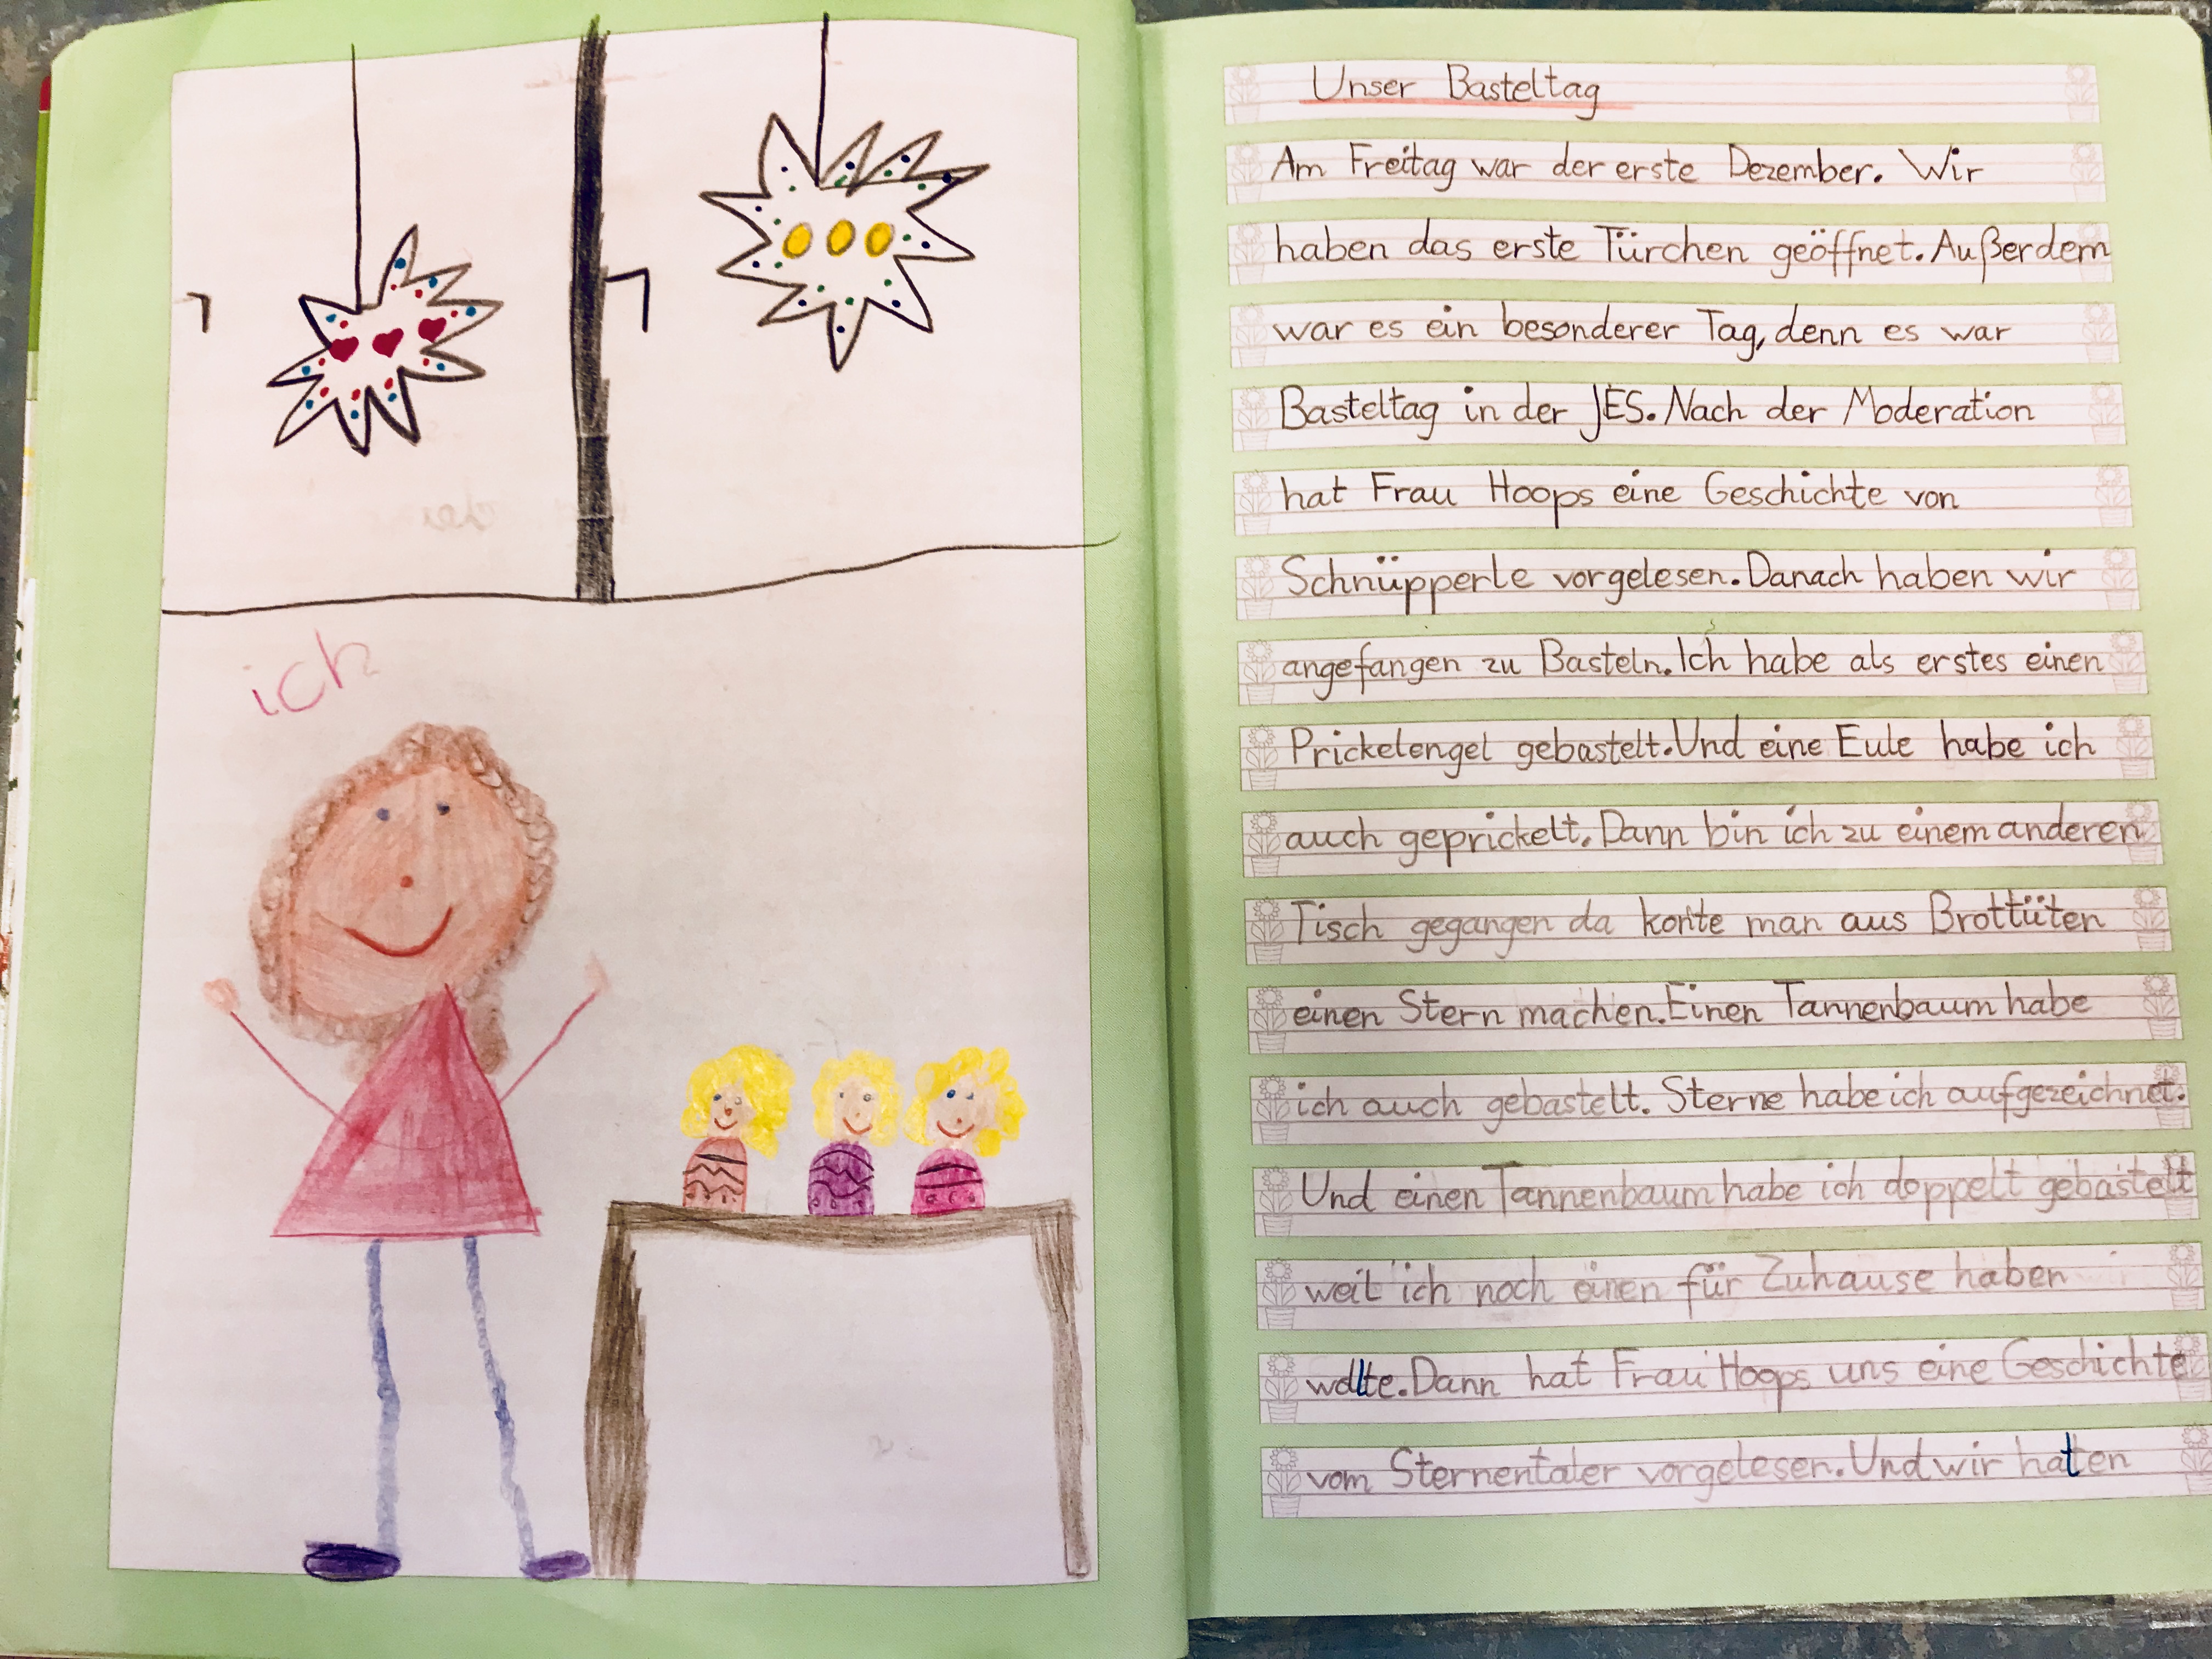 ich
Unser Basteltag
Am Freitag war der erste Dezember. Wir
haben das erste Türchen geöffnet. Außerdem
war es ein besonderer Tag, denn es war
Basteltag in der JES. Nach der Moderation
hat Frau Hoops eine Geschichte von
Schnüpperle vorgelesen. Danach haben wir
angefangen zu Basteln. Ich habe als erstes einen
Prickelengel gebastelt. Und eine Eule habe ich
auch geprickelt. Dann bin ich zu einem anderen
Tisch gegangen da konte man aus Brottüten
einen Stern machen. Einen Tannenbaum habe
ich auch gebastelt. Sterne habe ich aufgezeichnet.
Und einen Tannenbaum habe ich doppelt gebastelt
weil ich noch einen für Zuhause haben
wollte. Dann hat Frau Hoops uns eine Geschichte
vom Sternentaler vorgelesen. Und wir hatten